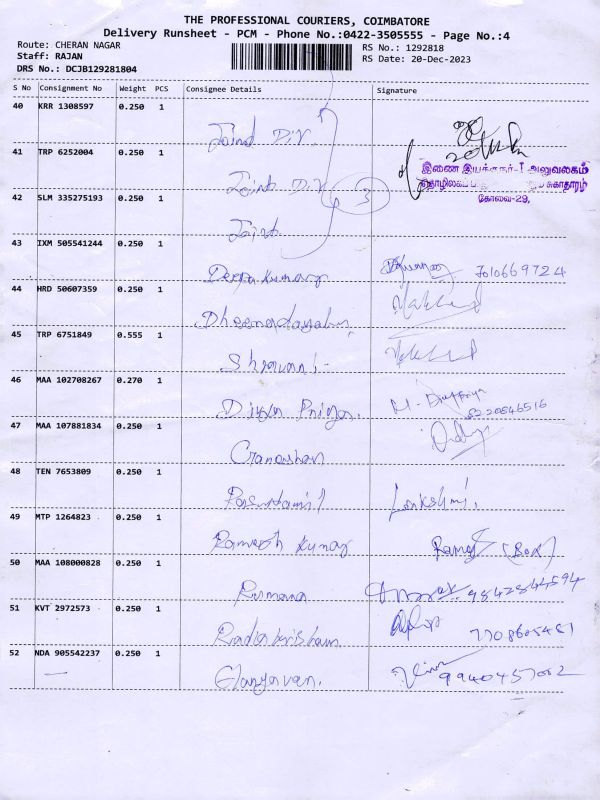 THE PROFESSIONAL COURIERS, COIMBATORE
Delivery Runsheet - PCM - Phone No.:0422-3505555 - Page No.:4
Route: CHERAN NAGAR
RS No.: 1292818
Staff: RAJAN
RS Date: 20-Dec-2023
DRS No.: DCJB129281804
S No Consignment No Weight PCS Consignee Details Signature
40 KRR 1308597 0.250 1 Joint Dir
41 TRP 6252004 0.250 1 Joint Dir
இணை இயக்குநர்-I அலுவலகம்
சுகாதாரம்
கோவை-29,
42 SLM 335275193 0.250 1 Joint
3
43 IXM 505541244 0.250 1 Deepa Kumar 7010669724
44 HRD 50607359 0.250 1 Dheenadayalan
45 TRP 6751849 0.555 1 Shravani
46 MAA 102708267 0.270 1 Divya Priya M. Divyapriya
8220846516
47 MAA 107881834 0.250 1
48 TEN 7653809 0.250 1 Lakshmi.
49 MTP 1264823 0.250 1 Ramesh Kumar Ramesh (Box)
50 MAA 108000828 0.250 1 Rumana 9842844594
51 KVT 2972573 0.250 1 Radiakrisham 7708605481
52 NDA 905542237 0.250 1 Elangovan. 9940457002